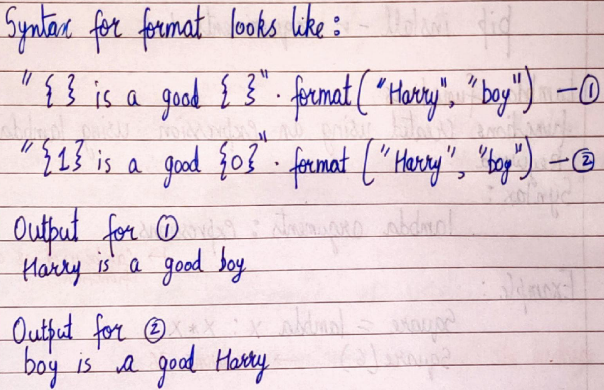 Syntax for format looks like :
"{ } is a good { }" . format ("Harry", "boy") — ①
"{1} is a good {0}" . format ("Harry", "boy") — ②
Output for ①
Harry is a good boy
Output for ②
boy is a good Harry